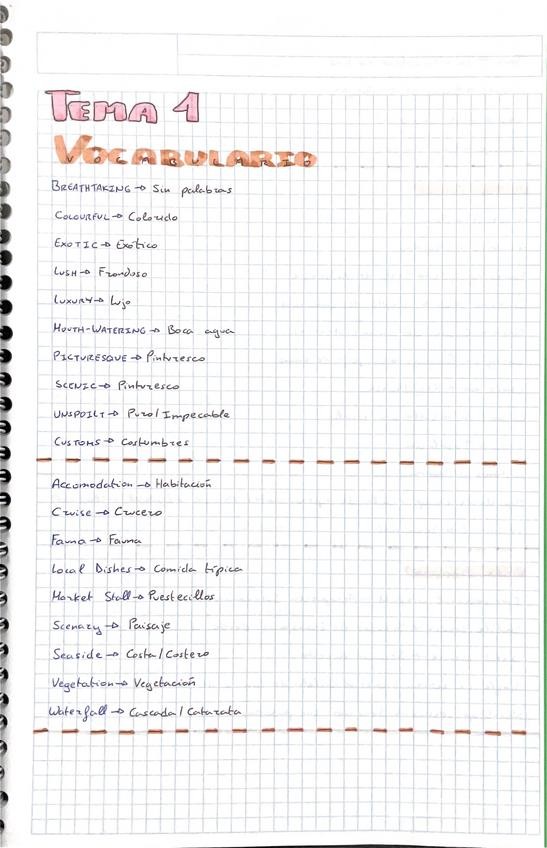 TEMA 1
VOCABULARIO
BREATHTAKING → Sin palabras
COLOURFUL → Colorido
EXOTIC → Exótico
LUSH → Frondoso
LUXURY → Lujo
MOUTH-WATERING → Boca agua
PICTURESQUE → Pinturesco
SCENIC → Pinturesco
UNSPOILT → Puro/Impecable
CUSTOMS → Costumbres
Accomodation → Habitación
Cruise → Crucero
Fauna → Fauna
Local Dishes → Comida típica
Market Stall → Puestecillos
Scenary → Paisaje
Seaside → Costa/Costero
Vegetation → Vegetación
Waterfall → Cascada/Catarata